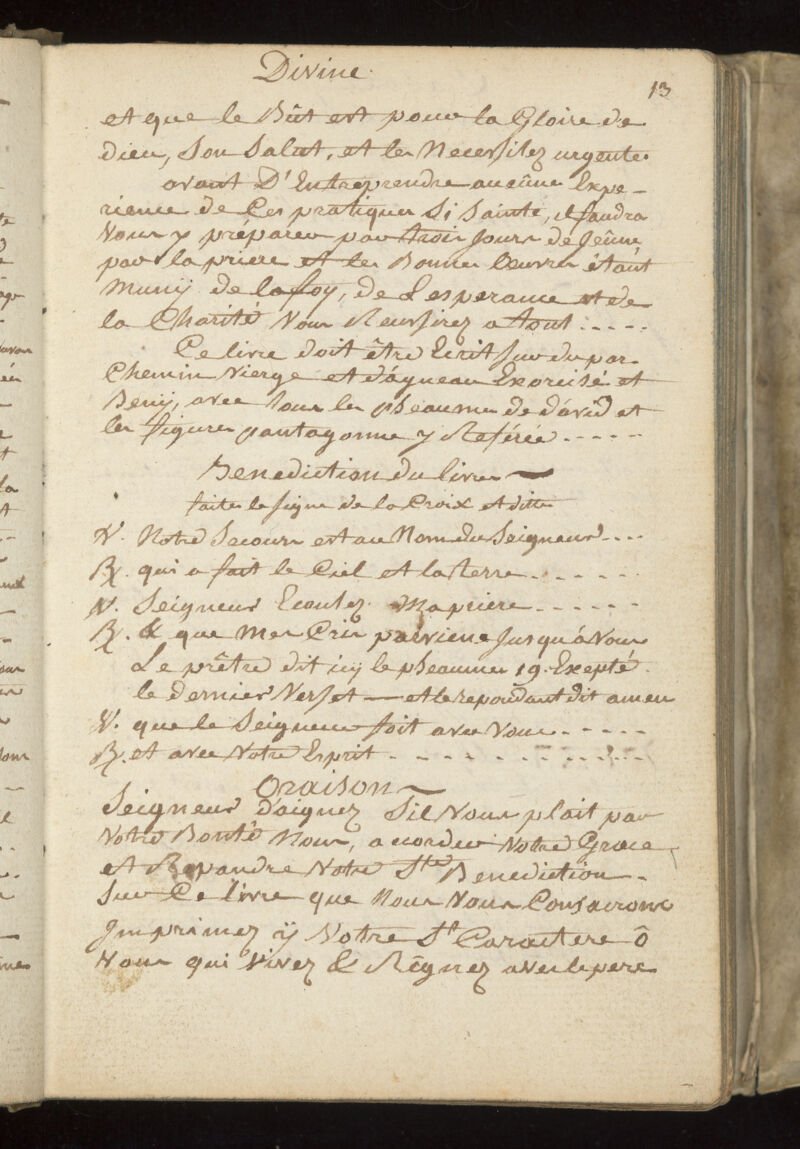 Divine.
13
et que le Bût est pour la Gloire de
dieu, Son Salut, et les Necessitez urgentes
avant D'Entreprendre aucûne Expe-
rience de Ces pratiques Si Sainte, il faudra
Vous y préparer par trois Jours de Jeûne
par la priere et les Bonnes Œuvres étant
muny de la foy, de L'esperance et de
la Charité Vous Reussirez a tout.....
Ce livre doit être Ecrit Sur du par-
Chemin Vierge et d'ágneau Exorcisé et
Beny, avec tous les pseaumes de dávid et
les figures pantagonne y Reférée.....
Benediction du livre
faites le signe de la Croix et dittes
V. Notre Secours est au Nom du Seigneur....
R. qui a fait le Ciel et la terre......
V. Seigneur Ecoutez Ma priere......
R. & que Mes Cris parviene Jusqu'á Vous
Le prêtre dit icy le pseaumes 19. Expté
le dernier Verset — et le repondant dit amen
V. que le Seigneur soit avec Vous.....
R. et avec Votre Esprit..........
Oraison
Seigneur d'aignez S'il Vous plait par
Votre Bonté Nous, accorder Votre Grace
et Repandre Votre Ste Benediction.
Sur Ce livre que Nous Vous Consacrons
Imprimez ÿ Votre St Caractere ô
Vous qui Vivez & Rêgnez avec le pere